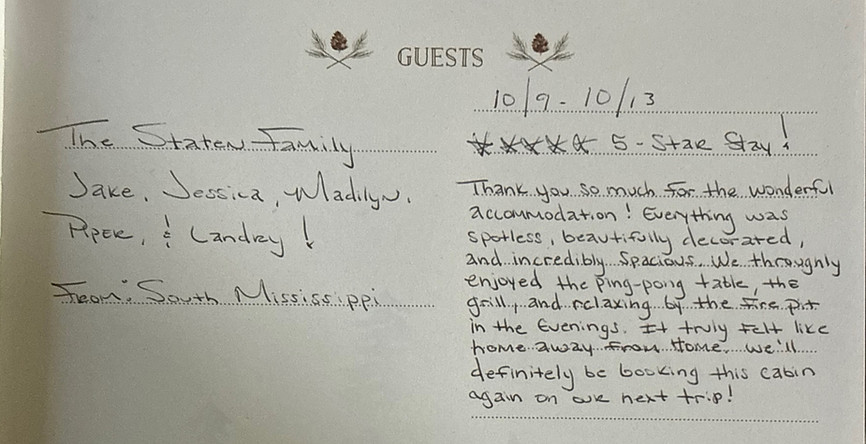 GUESTS
The Staten Family
Jake, Jessica, Madilyn,
Piper, & Landry!
From: South Mississippi
10/9 - 10/13
☆☆☆☆☆ 5-Star Stay!
Thank you so much for the wonderful
accommodation! Everything was
spotless, beautifully decorated,
and incredibly spacious. We throughly
enjoyed the ping-pong table, the
grill, and relaxing by the fire pit
in the Evenings. It truly felt like
home away from Home. We'll
definitely be booking this cabin
again on our next trip!